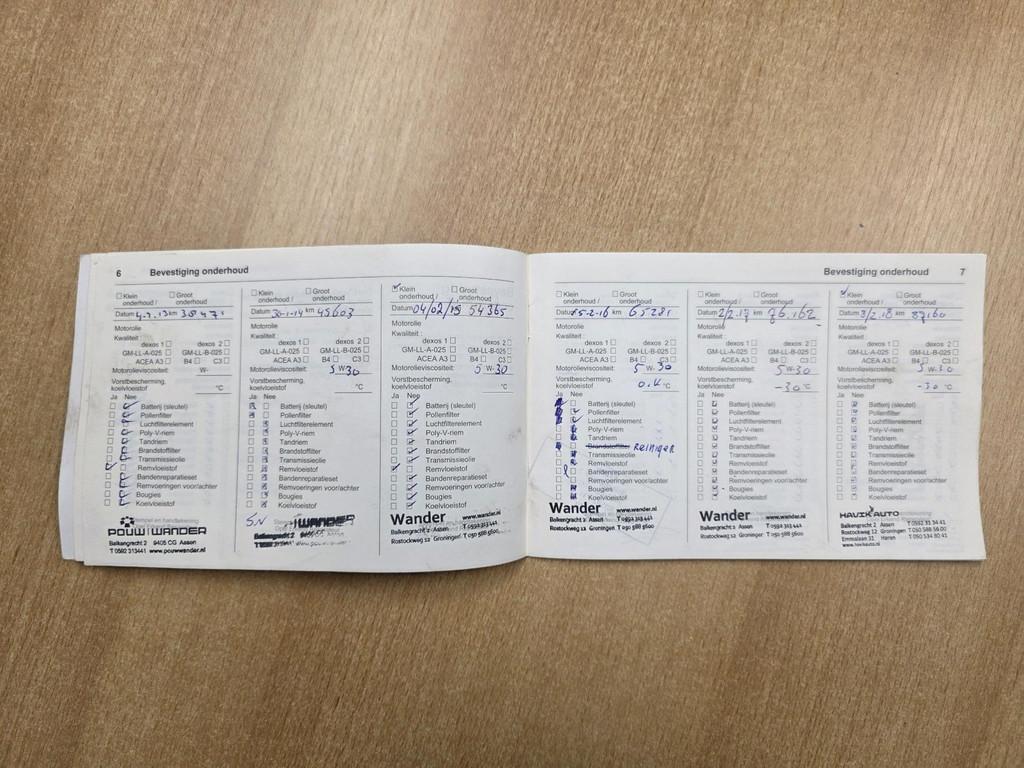 6 Bevestiging onderhoud
Klein onderhoud / Groot onderhoud
Datum km
Motorolie
Kwaliteit:
dexos 1 dexos 2
GM-LL-A-025 GM-LL-B-025
ACEA A3 B4 C3
Motorolieviscositeit: W-
Vorstbescherming, koelvloeistof °C
Ja Nee
Batterij (sleutel)
Pollenfilter
Luchtfilterelement
Poly-V-riem
Tandriem
Brandstoffilter
Transmissieolie
Remvloeistof
Bandenreparatieset
Remvoeringen voor/achter
Bougies
Koelvloeistof
POUW WANDER
Balkengracht 2 9405 CG Assen
T 0592 313441 www.pouwwander.nl
Klein onderhoud / Groot onderhoud
Datum 30-1-14 km 45603
Motorolie
Kwaliteit:
dexos 1 dexos 2
GM-LL-A-025 GM-LL-B-025
ACEA A3 B4 C3
Motorolieviscositeit: 5 W-30
Vorstbescherming, koelvloeistof °C
Ja Nee
Batterij (sleutel)
Pollenfilter
Luchtfilterelement
Poly-V-riem
Tandriem
Brandstoffilter
Transmissieolie
Remvloeistof
Bandenreparatieset
Remvoeringen voor/achter
Bougies
Koelvloeistof
WANDER
Klein onderhoud / Groot onderhoud
Datum 04/02/15 54365
Motorolie
Kwaliteit:
dexos 1 dexos 2
GM-LL-A-025 GM-LL-B-025
ACEA A3 B4 C3
Motorolieviscositeit: 5 W-30
Vorstbescherming, koelvloeistof °C
Ja Nee
Batterij (sleutel)
Pollenfilter
Luchtfilterelement
Poly-V-riem
Tandriem
Brandstoffilter
Transmissieolie
Remvloeistof
Bandenreparatieset
Remvoeringen voor/achter
Bougies
Koelvloeistof
Wander www.wander.nl
Balkengracht 2 Assen T 0592 313 441
Rostockweg 12 Groningen T 050 588 5600
Bevestiging onderhoud 7
Klein onderhoud / Groot onderhoud
Datum km 65281
Motorolie
Kwaliteit:
dexos 1 dexos 2
GM-LL-A-025 GM-LL-B-025
ACEA A3 B4 C3
Motorolieviscositeit: 5 W-30
Vorstbescherming, koelvloeistof o.k °C
Ja Nee
Batterij (sleutel)
Pollenfilter
Luchtfilterelement
Poly-V-riem
Tandriem
Brandstoffilter Reinigen
Transmissieolie
Remvloeistof
Bandenreparatieset
Remvoeringen voor/achter
Bougies
Koelvloeistof
Wander www.wander.nl
Balkengracht 2 Assen T 0592 313 441
Rostockweg 12 Groningen T 050 588 5600
Klein onderhoud / Groot onderhoud
Datum 2/2.17 km 76.162
Motorolie
Kwaliteit:
dexos 1 dexos 2
GM-LL-A-025 GM-LL-B-025
ACEA A3 B4 C3
Motorolieviscositeit: 5 W-30
Vorstbescherming, koelvloeistof -30 °C
Ja Nee
Batterij (sleutel)
Pollenfilter
Luchtfilterelement
Poly-V-riem
Tandriem
Brandstoffilter
Transmissieolie
Remvloeistof
Bandenreparatieset
Remvoeringen voor/achter
Bougies
Koelvloeistof
Wander www.wander.nl
Balkengracht 2 Assen T 0592 313 441
Rostockweg 12 Groningen T 050 588 5600
Klein onderhoud / Groot onderhoud
Datum 3/2.18 km 87160
Motorolie
Kwaliteit:
dexos 1 dexos 2
GM-LL-A-025 GM-LL-B-025
ACEA A3 B4 C3
Motorolieviscositeit: 5 W-30
Vorstbescherming, koelvloeistof -30 °C
Ja Nee
Batterij (sleutel)
Pollenfilter
Luchtfilterelement
Poly-V-riem
Tandriem
Brandstoffilter
Transmissieolie
Remvloeistof
Bandenreparatieset
Remvoeringen voor/achter
Bougies
Koelvloeistof
HAVIK AUTO
Balkengracht 2 Assen T 0592 31 34 41
Rostockweg 12 Groningen T 050 588 56 00
Emmalaan 31 Haren T 050 534 80 41
www.havikauto.nl